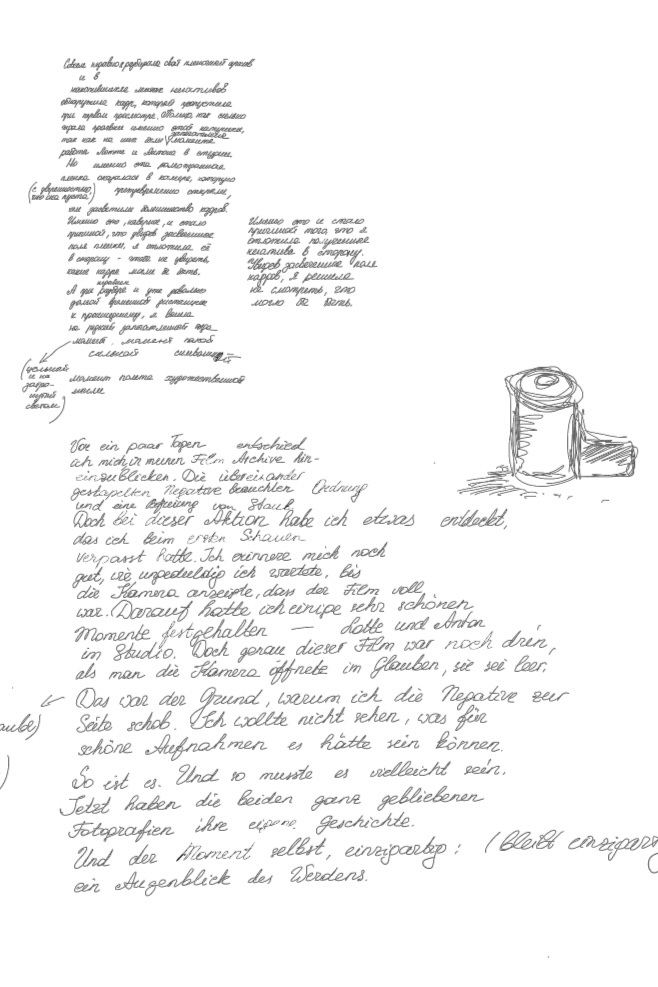 Совсем недавно разбирала свой пленочный архив
и в
накопившихся многих негативов
обнаружила кадр, который пропустила
при первом просмотре. Помню как сильно
ждала проявки именно этой катушки,
запечатлены
так как на ней были моменты
работы Лотте и Антона в студии.
Но именно эта 
пленка оказалась в камере, которую
(с уверенностью, что она пуста) преждевременно открыли,
и засветили большинство кадров.
Именно это, наверное, и стало
причиной, что увидев засвеченное
поле пленки, я отложила её
в сторону - чтобы не увидеть,
какие кадры могли бы быть.
А при разборе и уже довольно
долгой временной дистанции
к прошедшему, я вышла
на редкий запечатленный
момент
сильной
(цельный
и не
светом)
момент полета художественной
мысли
Именно это и стало
причиной того, что я
отложила полученные
негативы в сторону.
Увидев засвеченные поля
кадров, я решила
не смотреть, что
могло бы быть.
Vor ein paar Tagen entschied
ich mich in meinen Film Archive hin-
einzublicken. Die übereinander
gestapelten Negative brauchten Ordnung
und eine Befreiung von Staub.
Doch bei dieser Aktion habe ich etwas entdeckt,
das ich beim ersten Schauen
verpasst hatte. Ich erinnere mich noch
gut, wie ungeduldig ich wartete, bis
die Kamera anzeigte, dass der Film voll
war. (Darauf hatte ich einige sehr schönen
Momente festgehalten — Lotte und Anton
im Studio. Doch genau dieser Film war noch drin,
als man die Kamera öffnete im Glauben, sie sei leer.
Das war der Grund, warum ich die Negative zur
aube) Seite schob. Ich wollte nicht sehen, was für
schöne Aufnahmen es hätte sein können.
)
So ist es. Und so musste es vielleicht sein.
Jetzt haben die beiden ganz gebliebenen
Fotografien ihre eigene Geschichte.
Und der Moment selbst, einzigartig: (bleibt einzigart
ein Augenblick des Werdens.